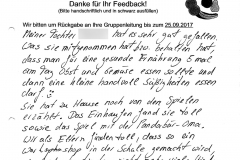 Danke für Ihr Feedback!
(Bitte handschriftlich und in schwarz ausfüllen)
Wir bitten um Rückgabe an Ihre Gruppenleitung bis zum 25.09.2017
Meiner Tochter hat es sehr gut gefallen.
Das sie mitgenommen hat bzw. behalten hat,
dass man für eine gesunde Ernährung 5 mal
am Tag Obst und Gemüse essen sollte und
dann eine kleine handvoll Süßigkeiten essen
darf
Sie hat zu Hause noch von den Spielen
erzählt. Das Einkaufen fand sie toll
sowie das Spiel mit der Pandabär-Oma.
Wir als Eltern finden toll, dass so ein
in der Schule gemacht wird,